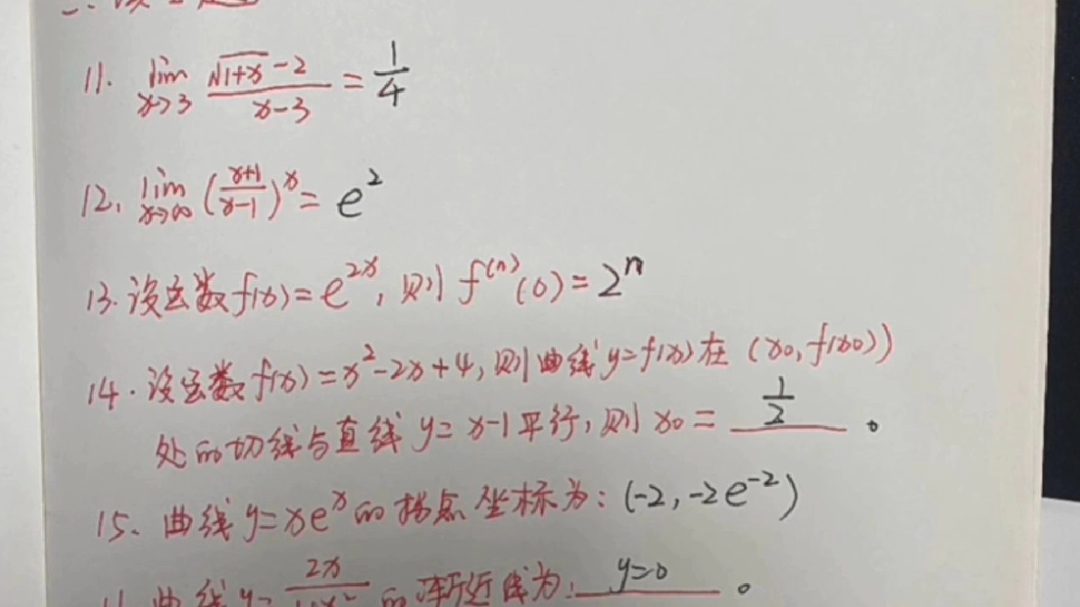 11. lim x→3 (√(1+x) - 2)/(x-3) = 1/4
12. lim x→∞ ((x+1)/(x-1))^x = e^2
13. 设函数f(x)=e^(2x), 则 f^(n)(0)=2^n
14. 设函数f(x)=x^2-2x+4, 则曲线y=f(x)在 (x0, f(x0))
处的切线与直线 y=x-1平行, 则 x0= 1/2 。
15. 曲线y=xe^x的拐点坐标为: (-2, -2e^-2)
曲线y= 2x 的渐近线为: y=0 。